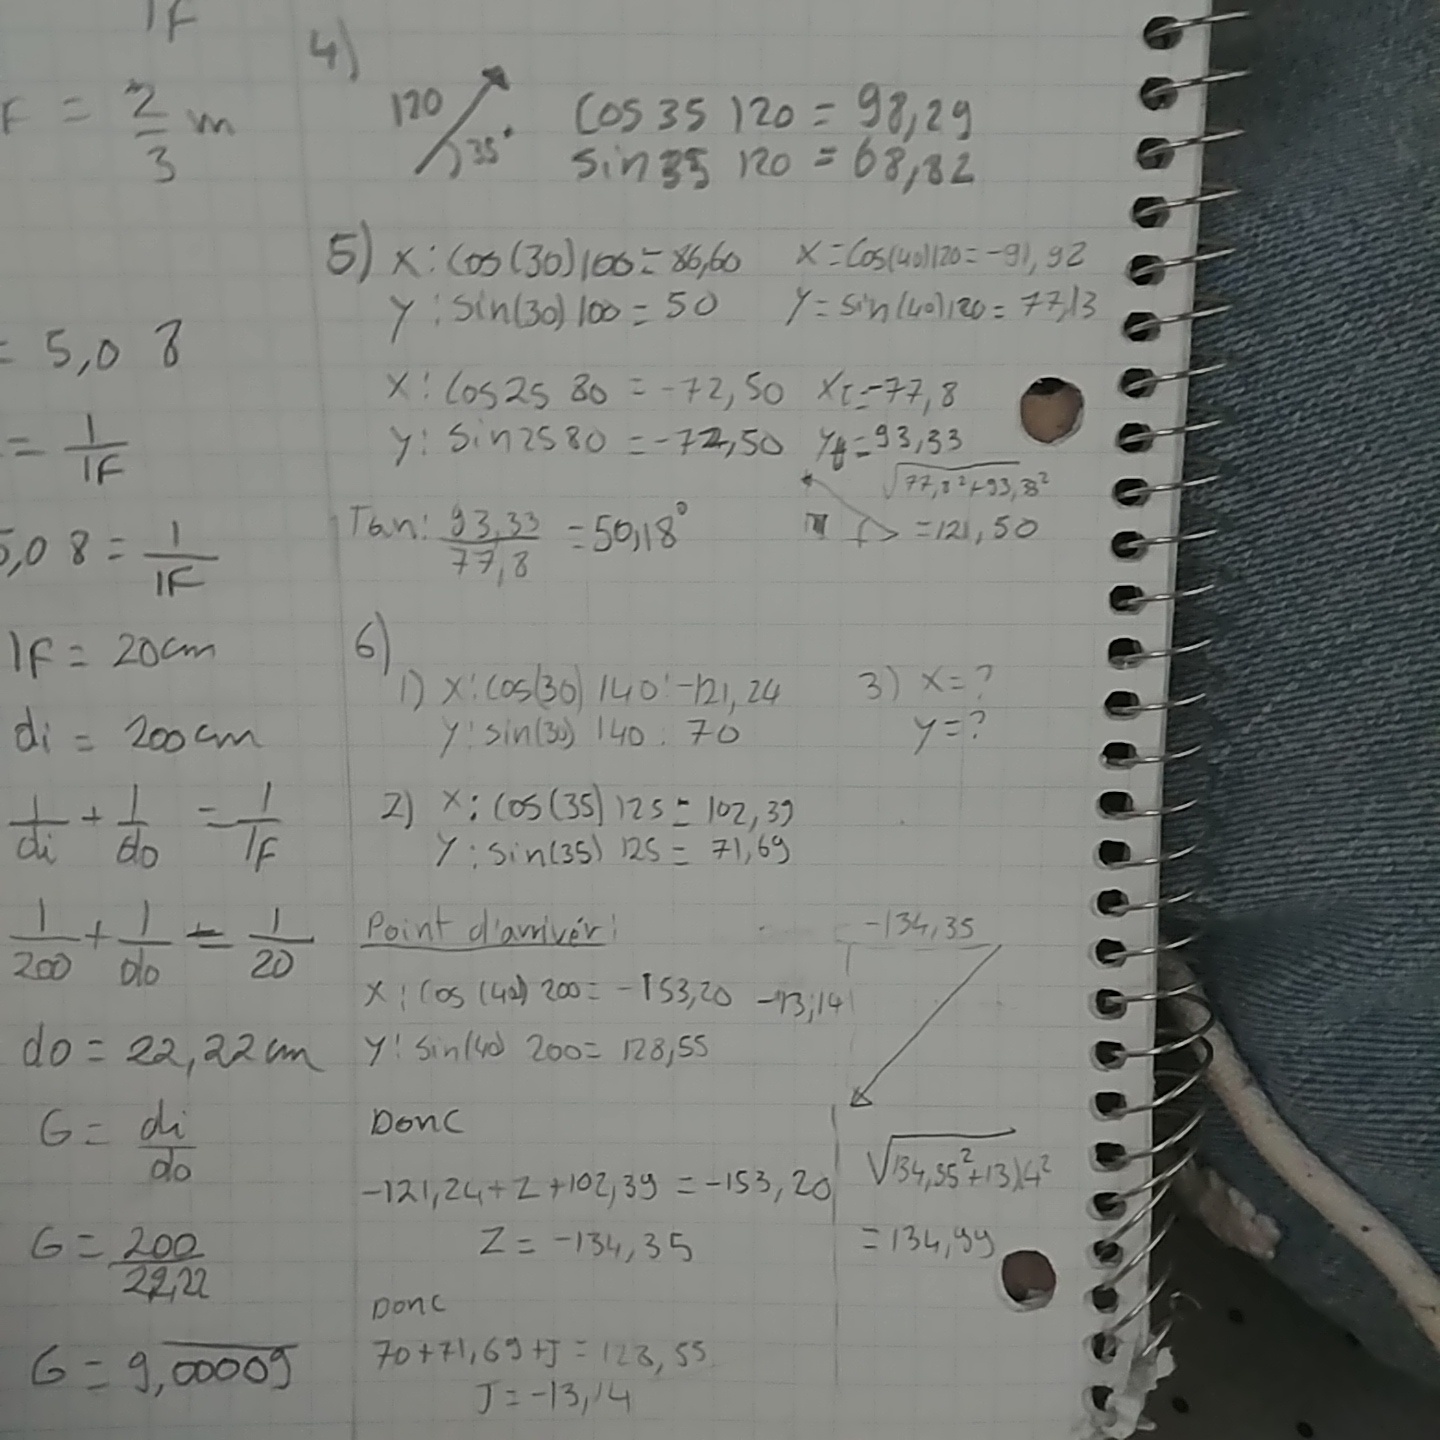 1F
F = 2/3 m
= 5,08
= 1/1F
5,08 = 1/1F
1F = 20cm
di = 200cm
1/di + 1/do = 1/1F
1/200 + 1/do = 1/20
do = 22,22cm
G = di/do
G = 200/22,22
G = 9,00009
4)
120
35°
cos 35 120 = 98,29
sin 35 120 = 68,82
5) X : cos(30) 100 = 86,60
y : sin(30) 100 = 50
X = cos(40) 120 = -91,92
y = sin(40) 120 = 77,13
X : cos 25 80 = -72,50
y : sin 25 80 = -72,50
Xt = -77,8
yt = 93,33
√77,8²+93,33²
= 121,50
Tan : 93,33/77,8 = 50,18°
6)
1) X : cos(30) 140 : -121,24
y : sin(30) 140 : 70
3) X = ?
y = ?
2) X : cos(35) 125 = 102,39
y : sin(35) 125 = 71,69
Point d'arrivér :
X : cos(40) 200 = -153,20
y : sin(40) 200 = 128,55
Donc
-121,24 + Z + 102,39 = -153,20
Z = -134,35
Donc
70 + 71,69 + J = 128,55
J = -13,14
-134,35
-13,14
√134,35²+13,14²
= 134,99